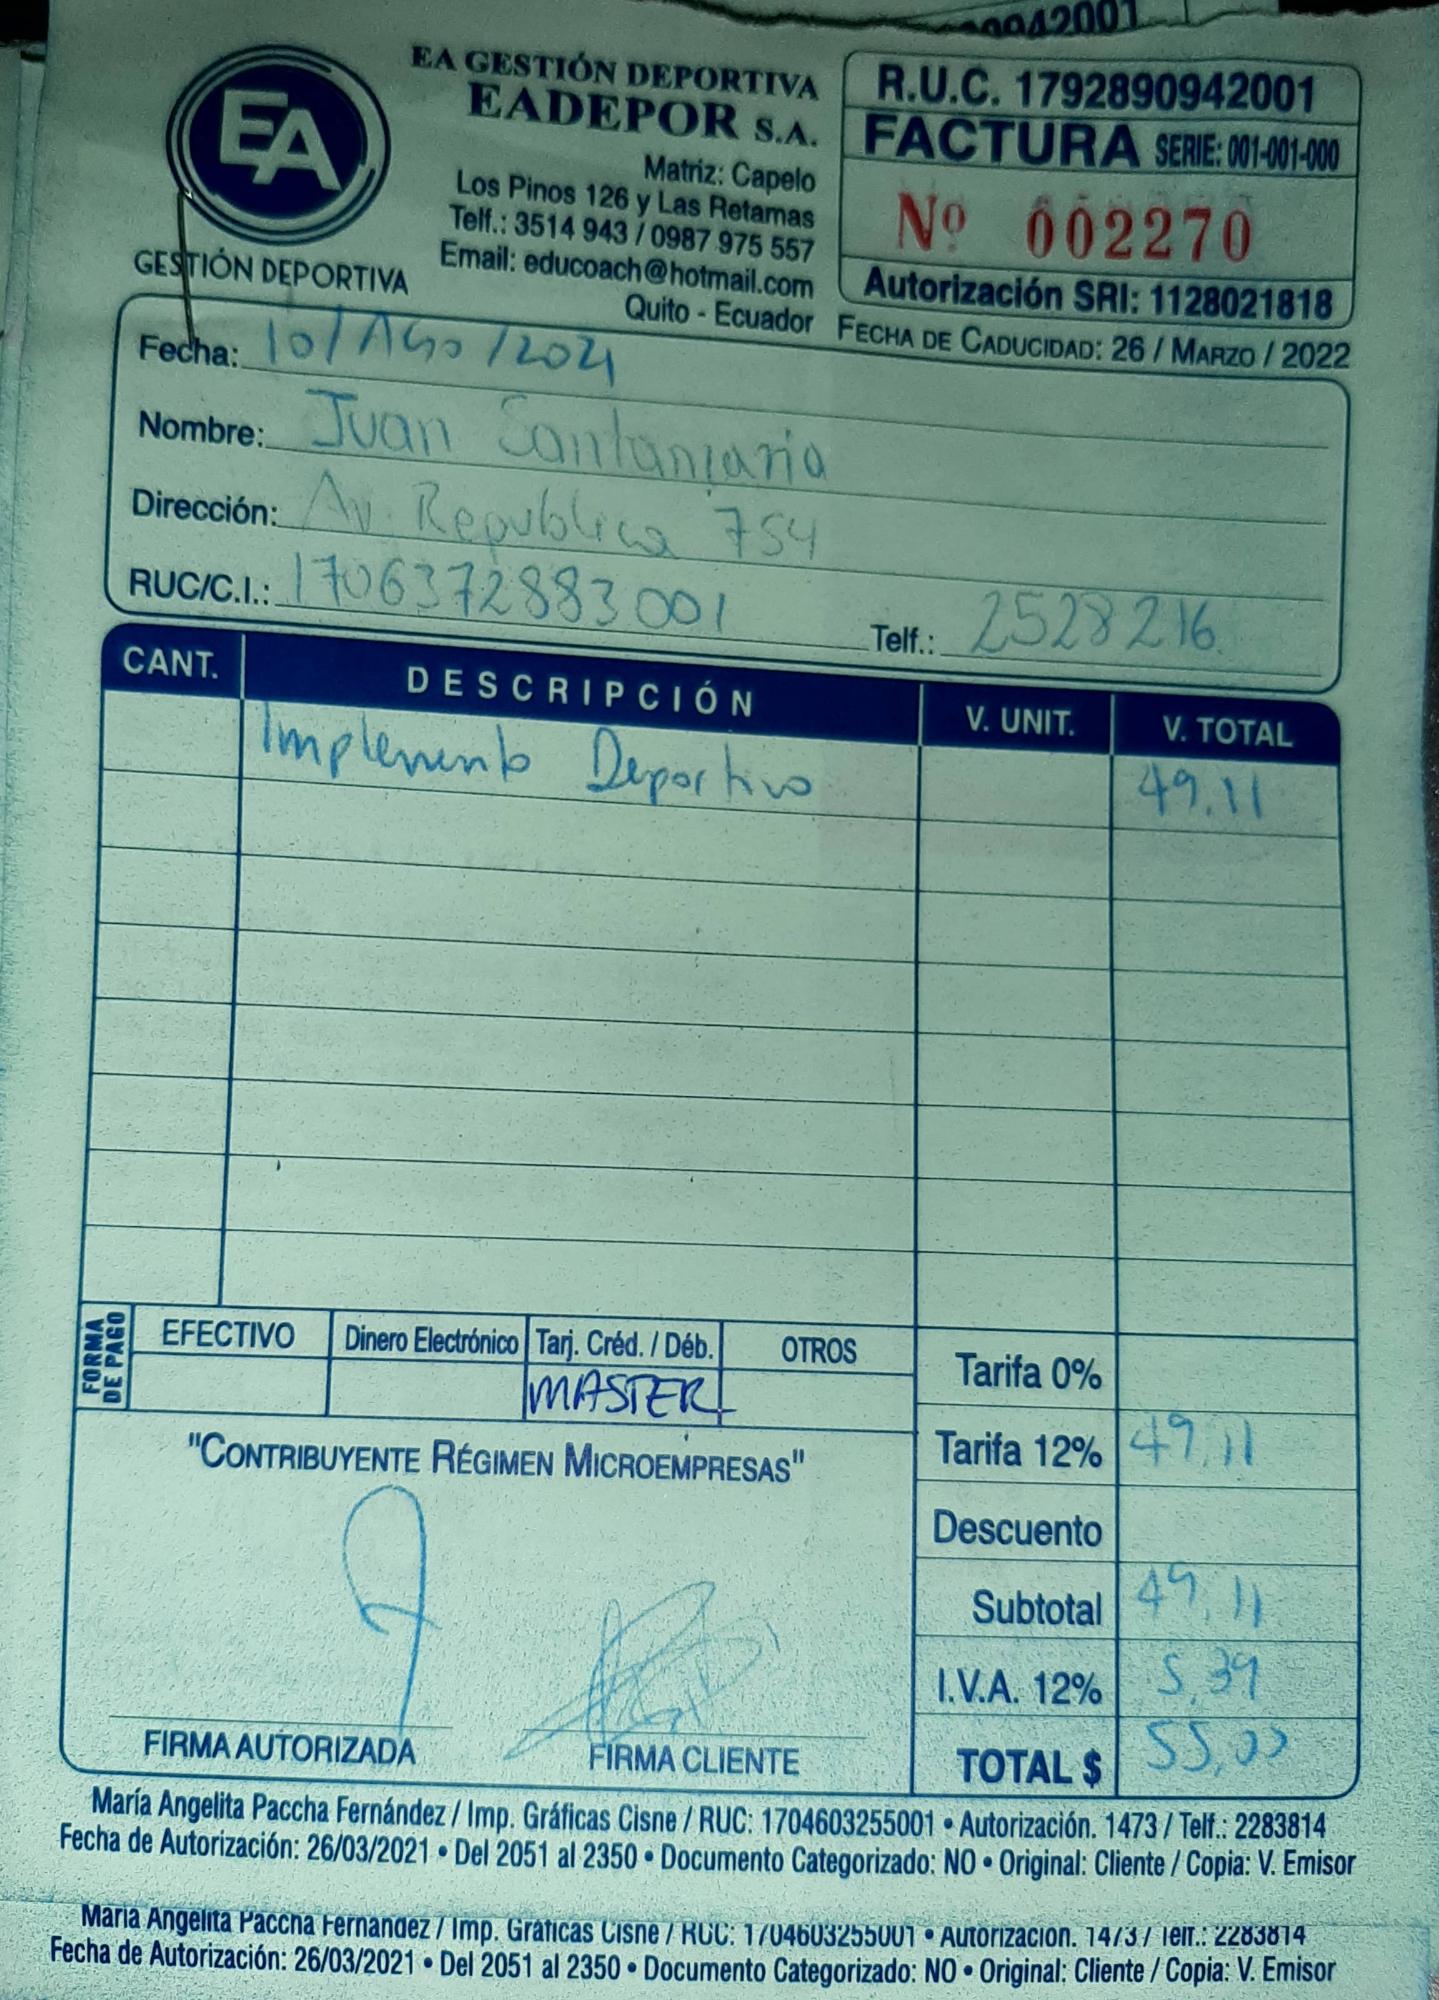 0942001
EA
GESTIÓN DEPORTIVA
EA GESTIÓN DEPORTIVA
EADEPOR S.A.
Matriz: Capelo
Los Pinos 126 y Las Retamas
Telf.: 3514 943 / 0987 975 557
Email: educoach@hotmail.com
Quito - Ecuador
R.U.C. 1792890942001
FACTURA SERIE: 001-001-000
Nº 002270
Autorización SRI: 1128021818
FECHA DE CADUCIDAD: 26 / MARZO / 2022
Fecha: 10/AGO/2021
Nombre: Juan Santamaria
Dirección: Av. Republica 754
RUC/C.I.: 1706372883001 Telf.: 2528216
CANT. DESCRIPCIÓN V. UNIT. V. TOTAL
Implemento Deportivo 49.11
FORMA DE PAGO
EFECTIVO Dinero Electrónico Tarj. Créd. / Déb. OTROS
MASTER
Tarifa 0%
Tarifa 12% 49,11
Descuento
Subtotal 49,11
I.V.A. 12% 5,39
TOTAL $ 55,00
"CONTRIBUYENTE RÉGIMEN MICROEMPRESAS"
FIRMA AUTORIZADA FIRMA CLIENTE
María Angelita Paccha Fernández / Imp. Gráficas Cisne / RUC: 1704603255001 • Autorización. 1473 / Telf.: 2283814
Fecha de Autorización: 26/03/2021 • Del 2051 al 2350 • Documento Categorizado: NO • Original: Cliente / Copia: V. Emisor
María Angelita Paccha Fernández / Imp. Gráficas Cisne / RUC: 1704603255001 • Autorización. 1473 / Telf.: 2283814
Fecha de Autorización: 26/03/2021 • Del 2051 al 2350 • Documento Categorizado: NO • Original: Cliente / Copia: V. Emisor